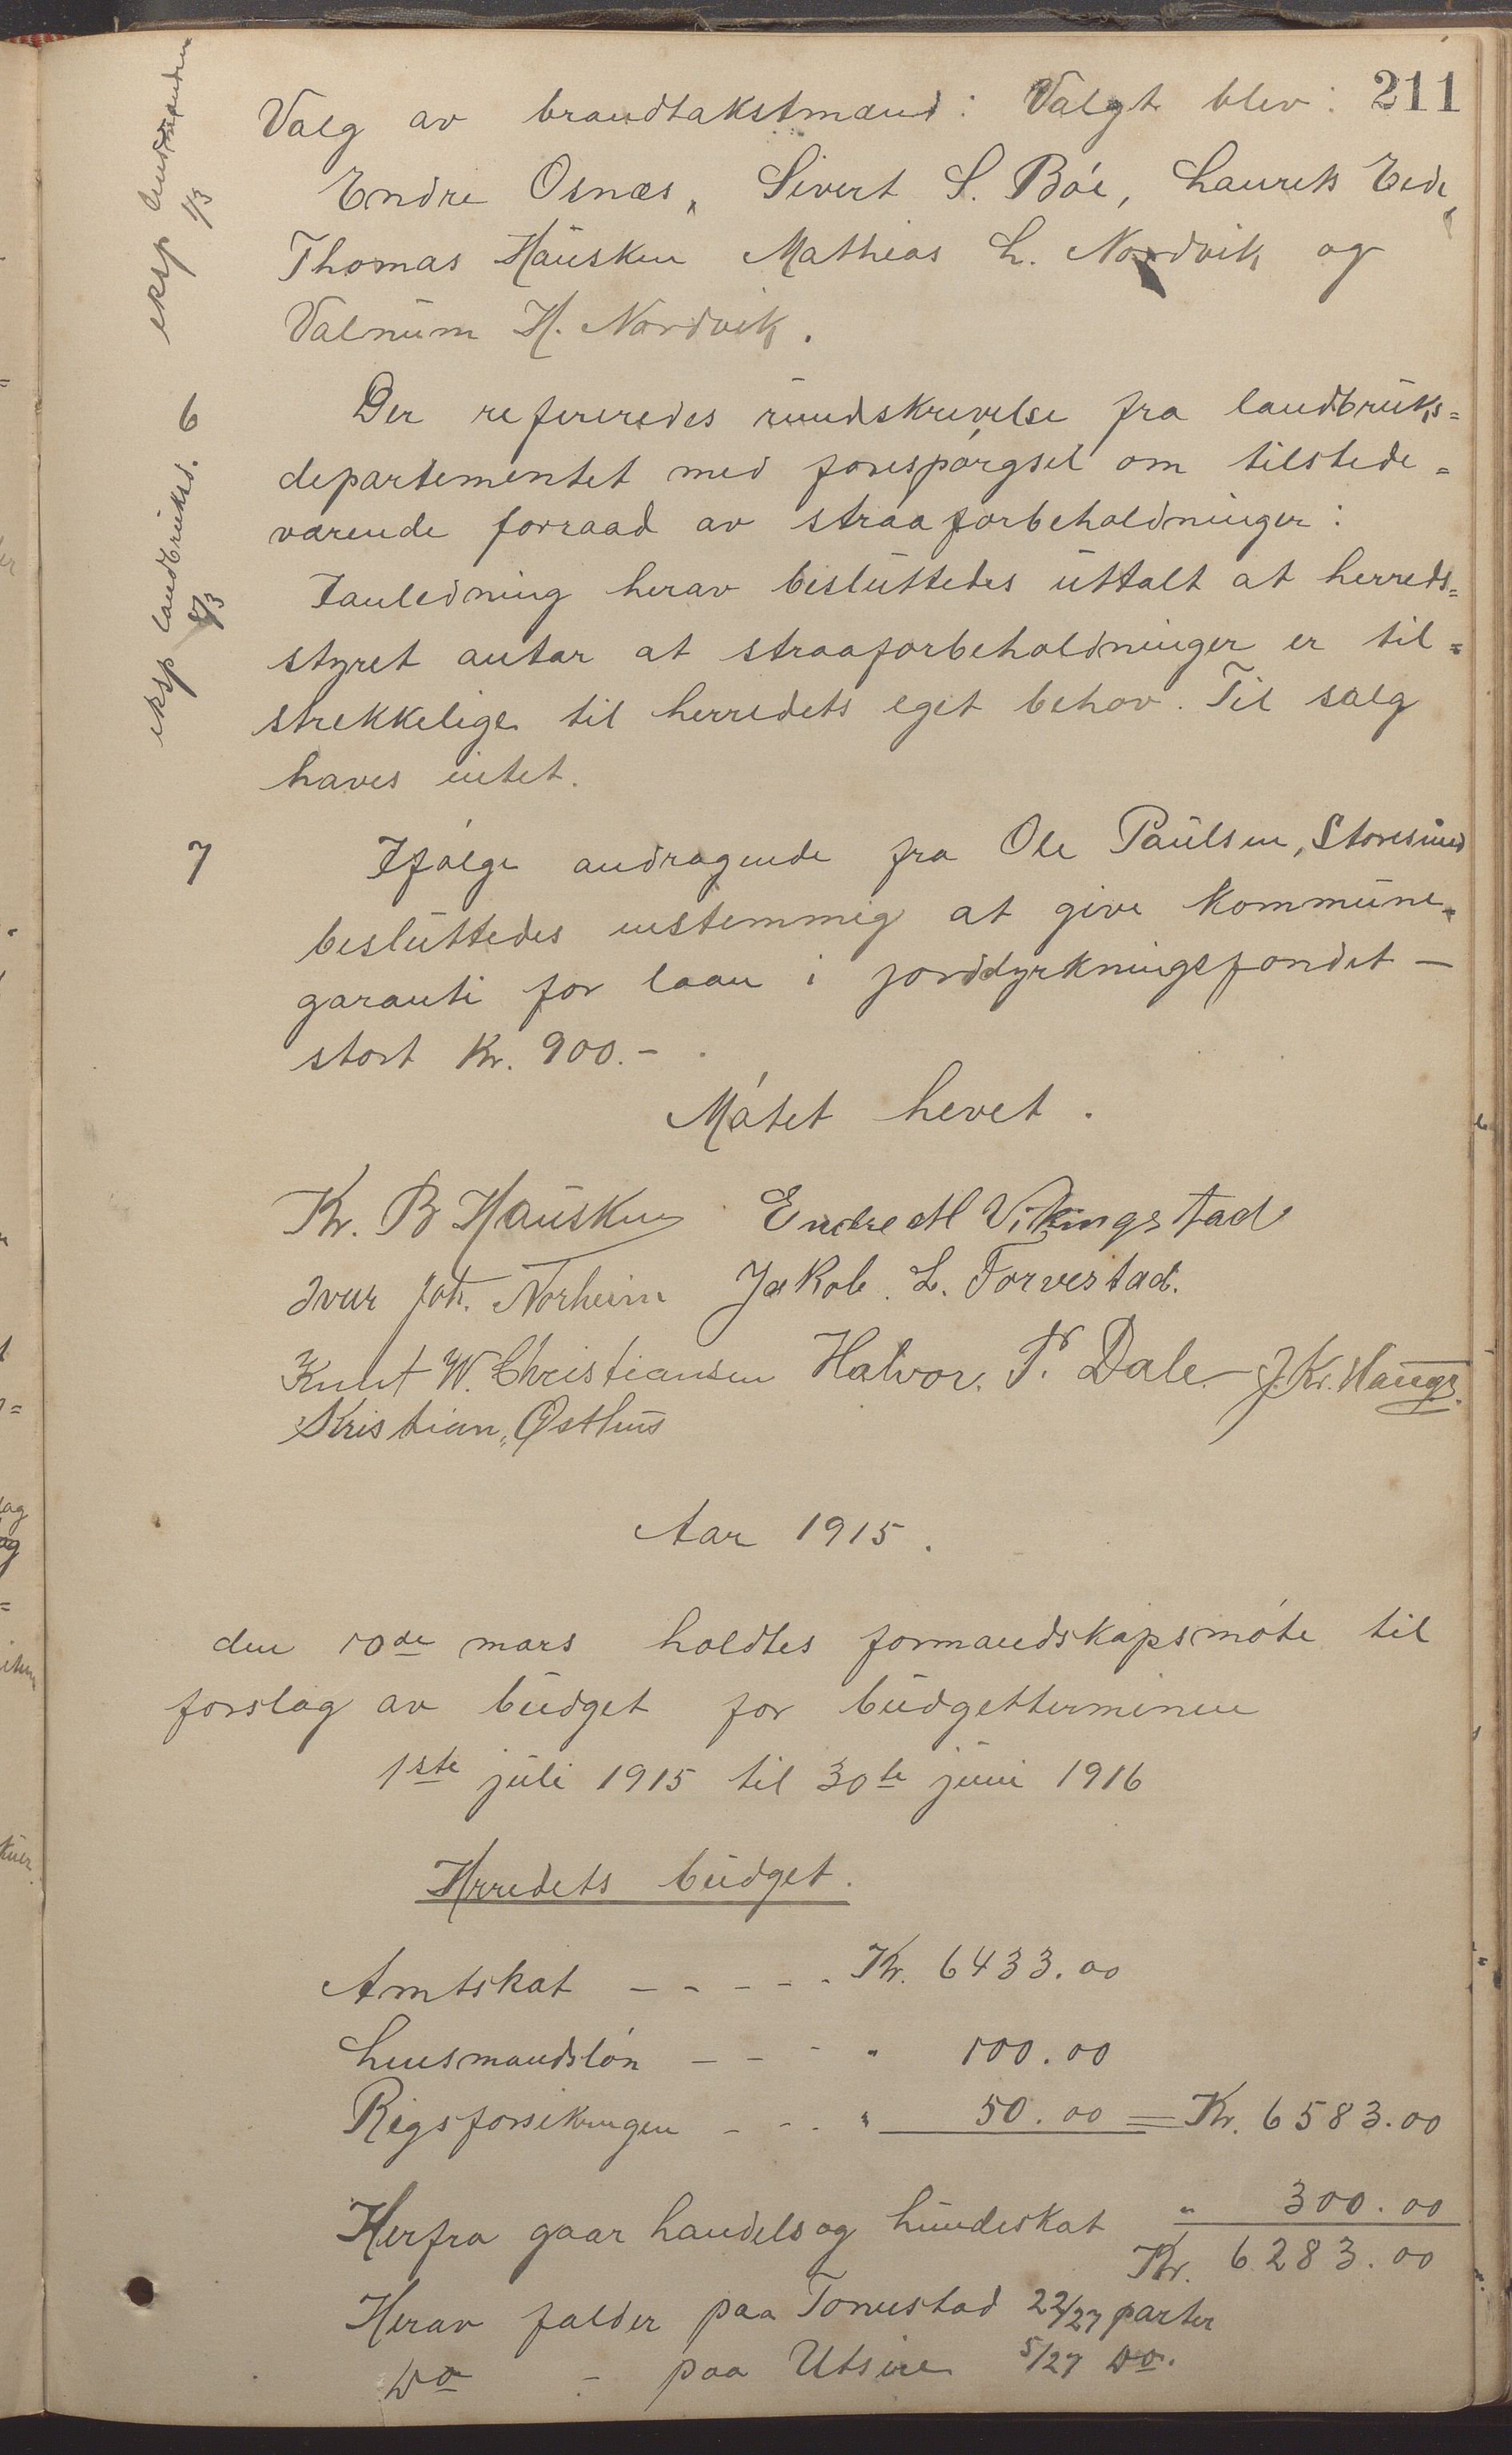 211
eksp lensmanden
1/3
Valg av brandtakstmænd: Valgt blev:
Endre Osnæs, Sivert S. Bøe, Laurits Eide,
Thomas Hausken Mathias L. Nordvik og
Valnum H. Nordvik.
6
eksp landbruksd.
8/3
Der refereredes rundskrivelse fra landbruks=
departementet med forespørgsel om tilstede=
værende forraad av straaforbeholdninger:
I anledning herav besluttedes uttalt at herreds=
styret antar at straaforbeholdninger er til=
strekkelige til herredets eget behov. Til salg
haves intet.
7
Ifølge andragende fra Ole Paulsen, Storesund
besluttedes enstemmig at give kommune-
garanti for laan i jorddyrkningsfondet —
stort Kr. 900.-
Møtet hevet.
Kr. B Hausken Endre M Vikingstad
Iver Joh. Norheim Jakob. L. Torvestad.
Knut W. Christiansen Halvor. P. Dale - J. Kr. Hauge.
Kristian, Østhus
Aar 1915.
den 10de mars holdtes formandskapsmøte til
forslag av budget for budgetterminen
1ste juli 1915 til 30te juni 1916
Herredets budget.
Amtskat - - - - - Kr. 6433.00
Lensmandsløn - - - " 100.00
Rigsforsikringen - - - " 50.00 = Kr. 6583.00
Herfra gaar handels og hundeskat " 300.00
Kr. 6283.00
Herav falder paa Torvestad 22/27 parter
Do - paa Utsire 5/27 Do.